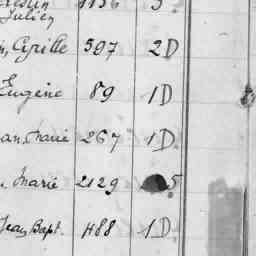 Julien 1136 5.
Cyrille 597 2D
Eugène 89 1D
Marie 267 1D
Marie 2129 5
Jean Bapt. 488 1D